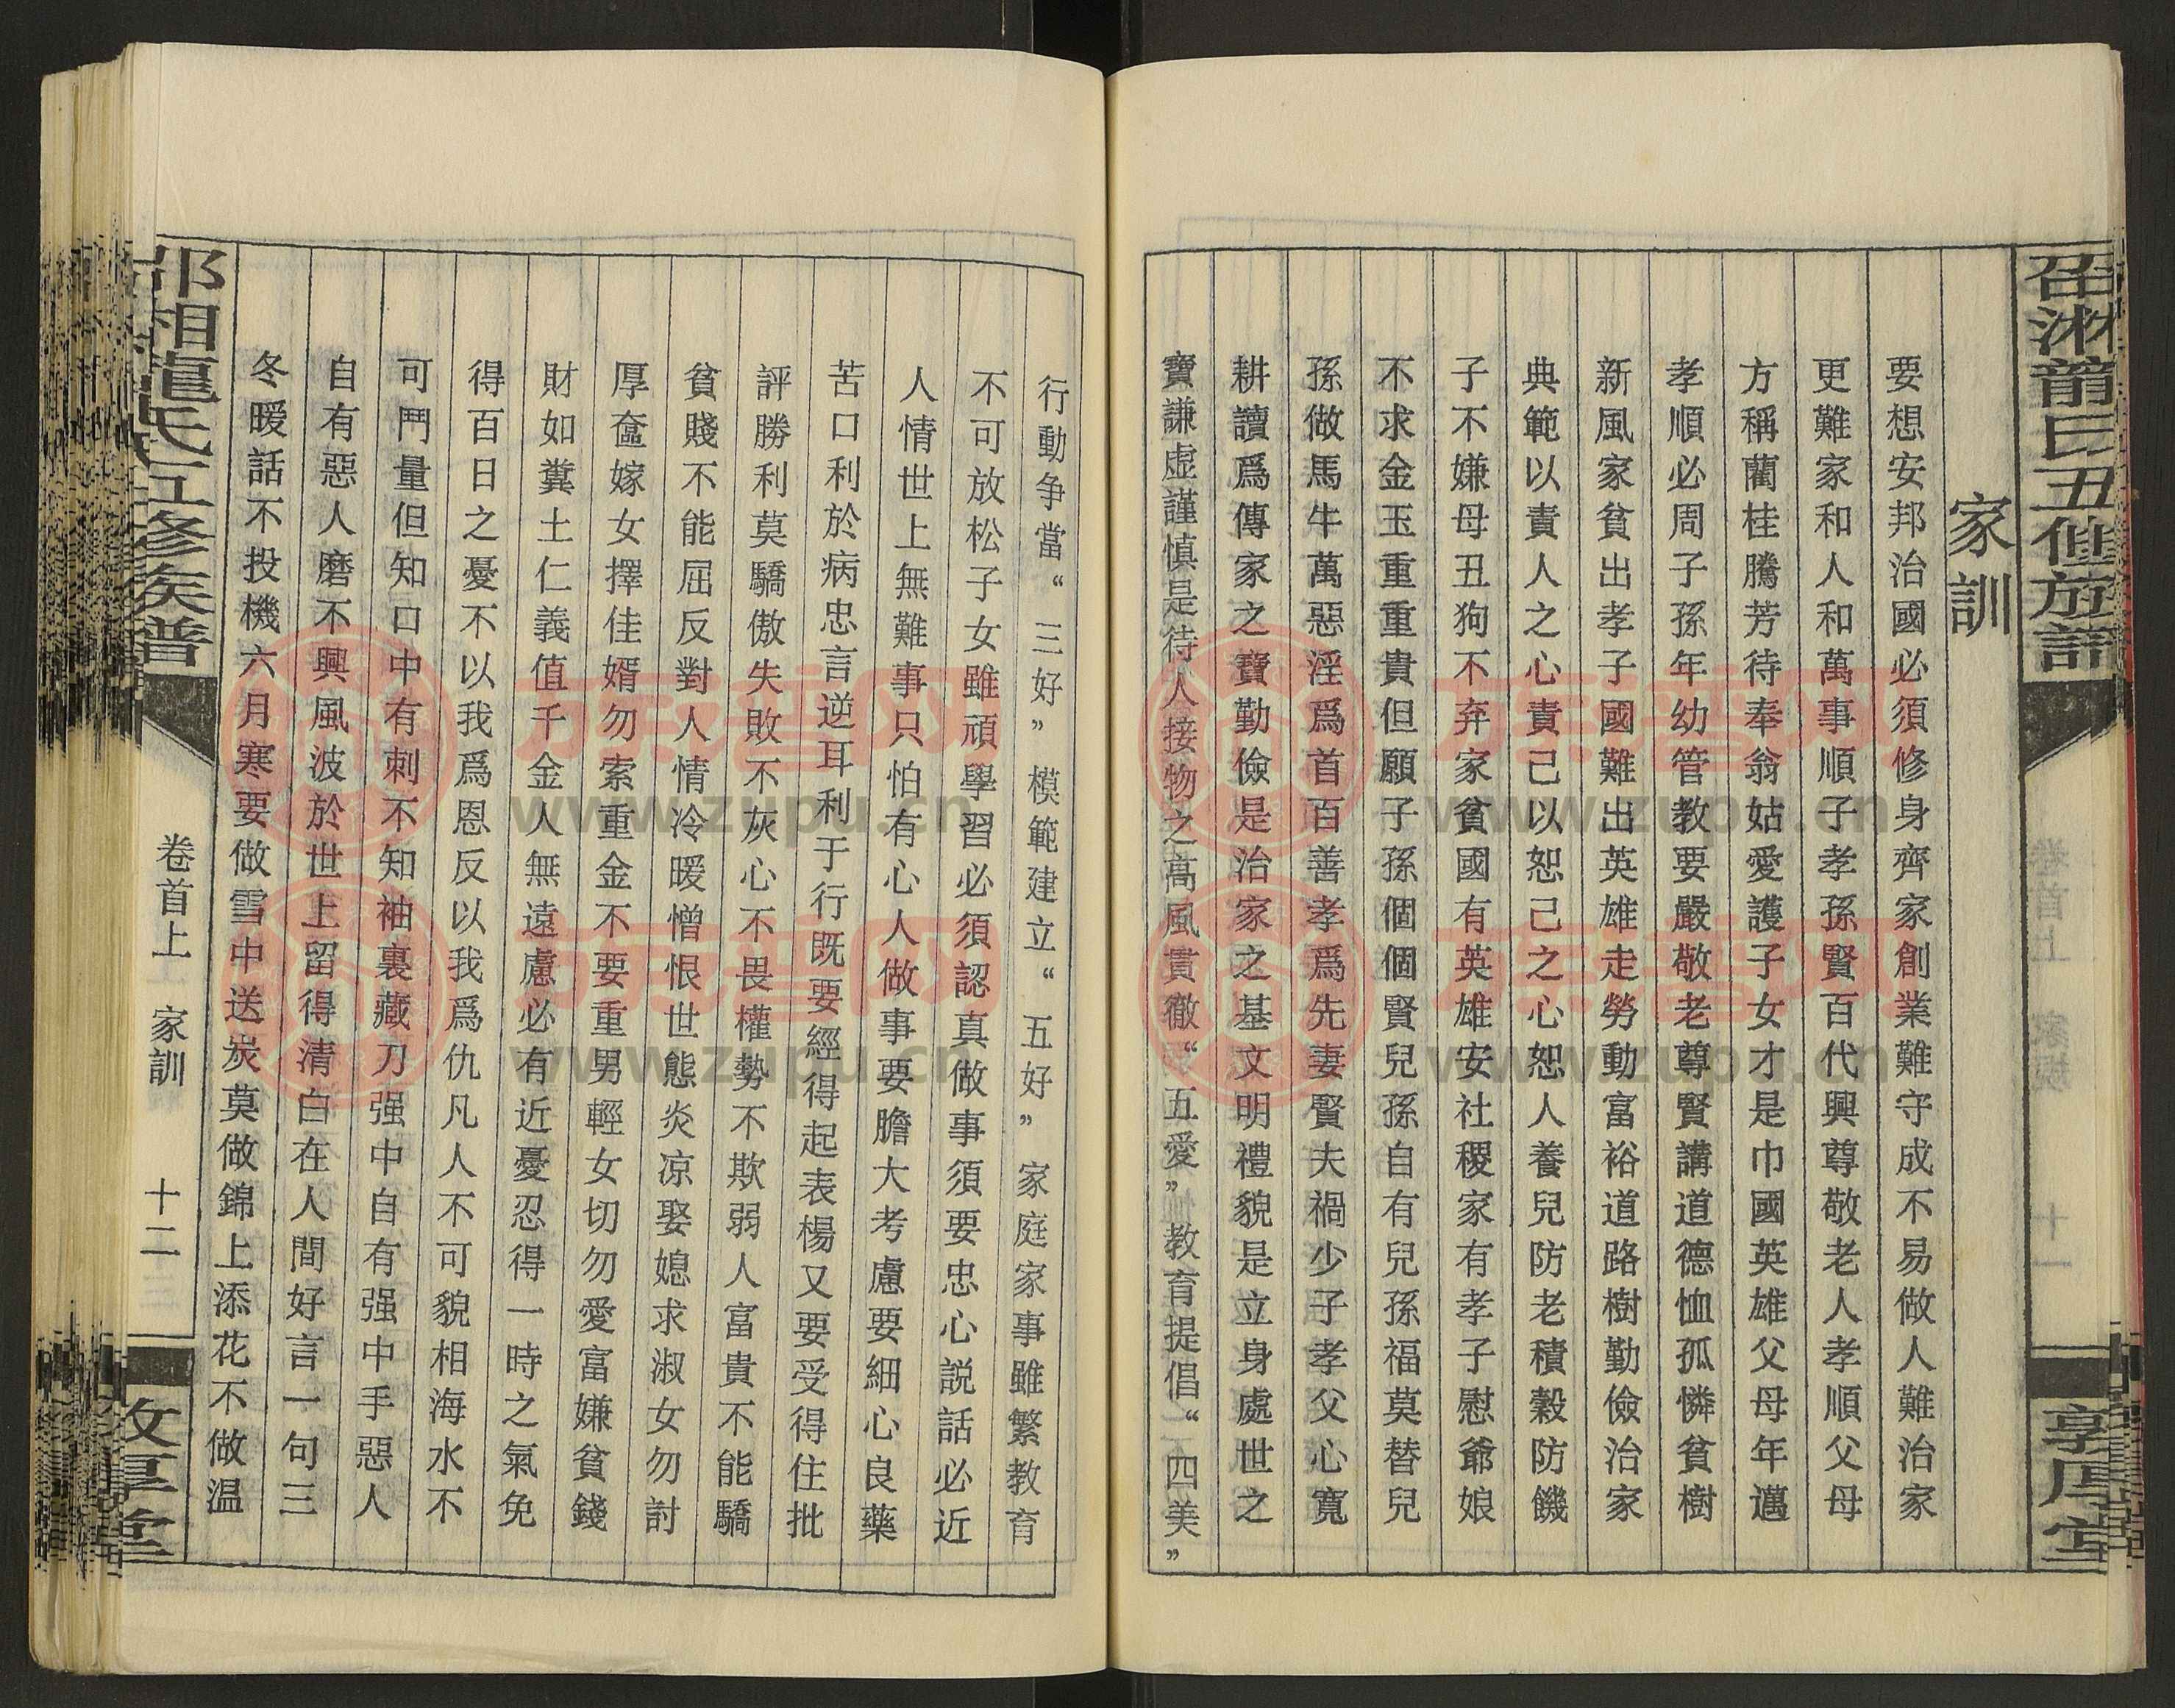 家訓
要想安邦治國必須修身齊家創業難守成不易做人難治家
更難家和人和萬事順子孝孫賢百代興尊敬老人孝順父母
方稱蘭桂騰芳待奉翁姑愛護子女才是巾國英雄父母年邁
孝順必周子孫年幼管教要嚴敬老尊賢講道德恤孤憐貧樹
新風家貧出孝子國難出英雄走勞動富裕道路樹勤儉治家
典範以責人之心責己以恕己之心恕人養兒防老積穀防饑
子不嫌母丑狗不弃家貧國有英雄安社稷家有孝子慰爺娘
不求金玉重重貴但願子孫個個賢兒孫自有兒孫福莫替兒
孫做馬牛萬惡淫爲首百善孝爲先妻賢夫禍少子孝父心寬
耕讀爲傳家之寶勤儉是治家之基文明禮貌是立身處世之
寶謙虚謹慎是待人接物之高風貫徹“五愛”教育提倡“四美”
行動争當“三好”模範建立“五好”家庭家事雖繁教育
不可放松子女雖頑學習必須認真做事須要忠心説話必近
人情世上無難事只怕有心人做事要膽大考慮要細心良藥
苦口利於病忠言逆耳利于行既要經得起表楊又要受得住批
評勝利莫驕傲失敗不灰心不畏權勢不欺弱人富貴不能驕
貧賤不能屈反對人情冷暖憎恨世態炎凉娶媳求淑女勿討
厚奩嫁女擇佳婿勿索重金不要重男輕女切勿愛富嫌貧錢
財如糞土仁義值千金人無遠慮必有近憂忍得一時之氣免
得百日之憂不以我爲恩反以我爲仇凡人不可貌相海水不
可鬥量但知口中有刺不知袖裏藏刀强中自有强中手惡人
自有惡人磨不興風波於世上留得清白在人間好言一句三
冬暖話不投機六月寒要做雪中送炭莫做錦上添花不做温
邵湘龍氏五修族譜
卷首上 家訓 十二
敦厚堂